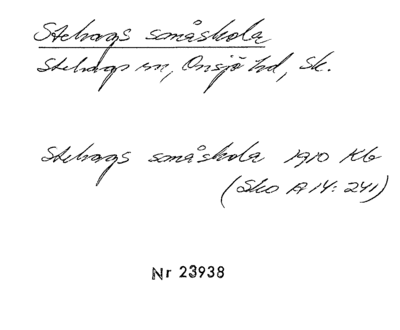 Stehags småskola
Stehags sn, Onsjö hd, Sk.
Stehags småskola 1910 Kb
(Sko A 14: 241)
Nr 23938